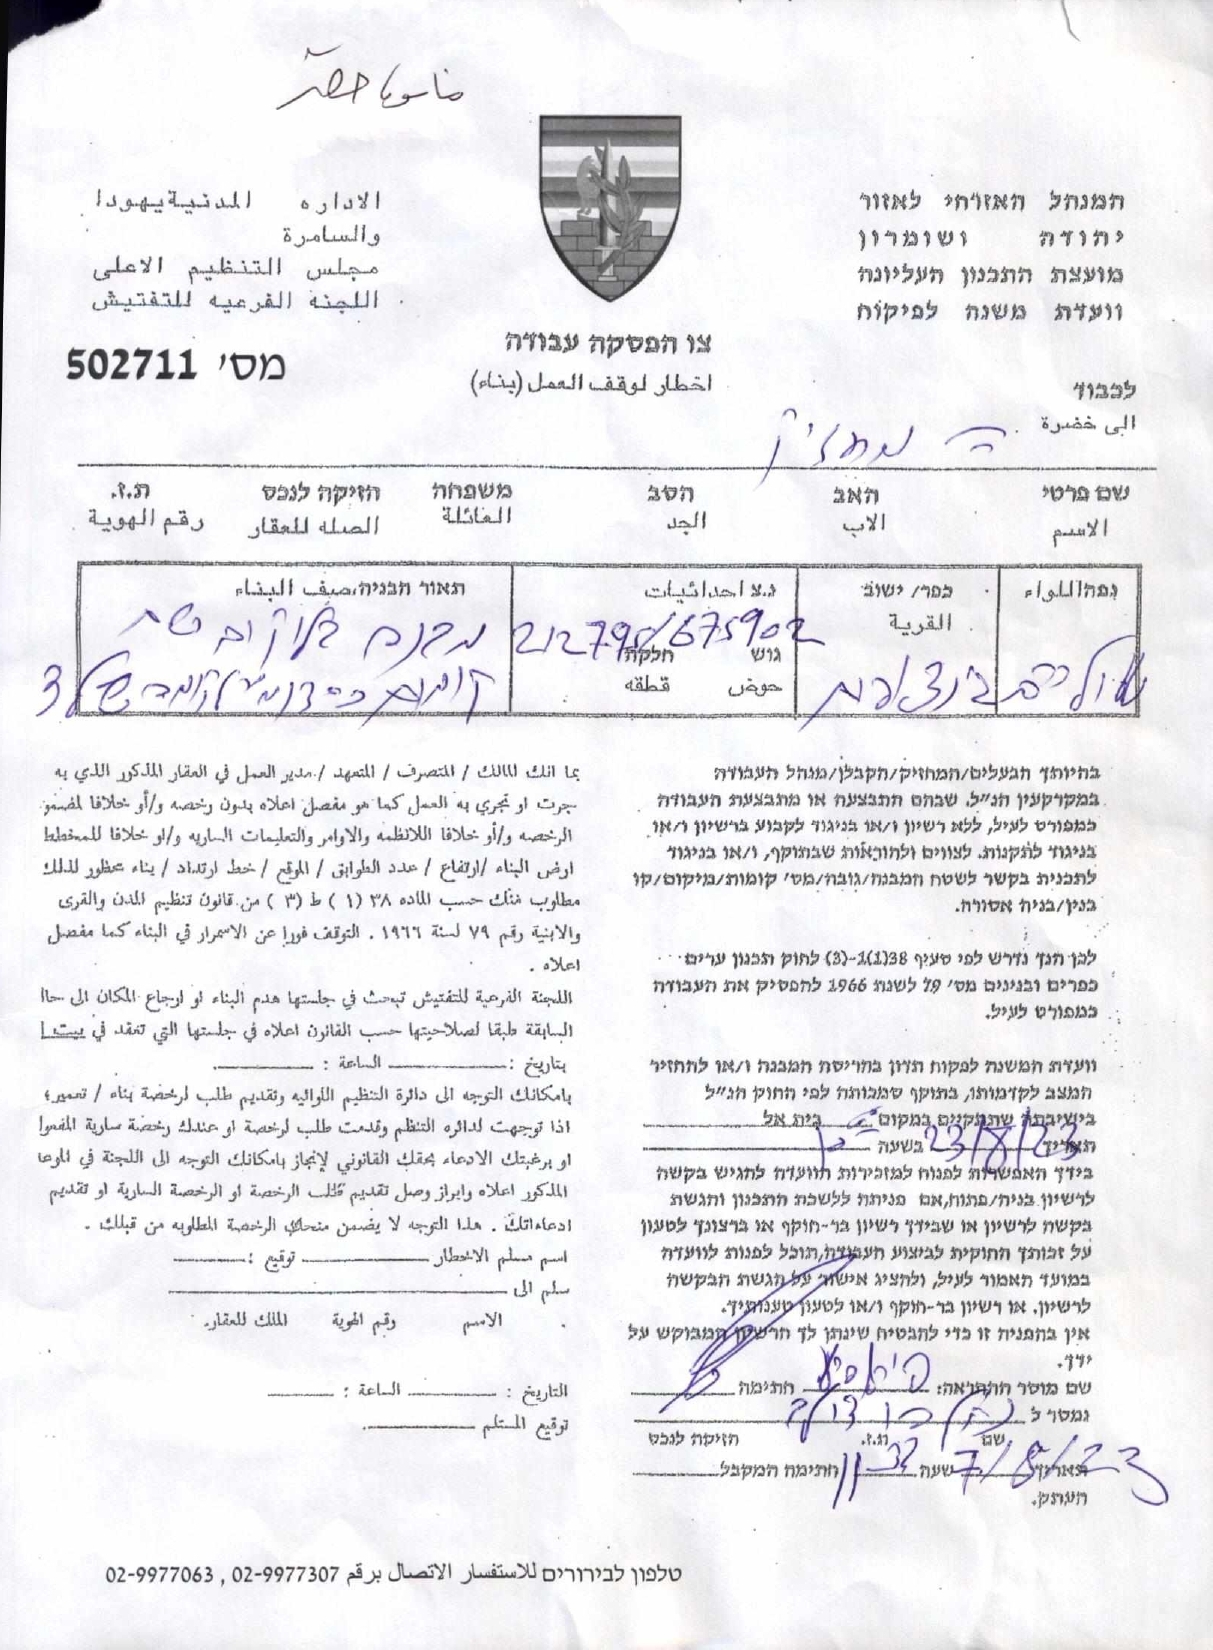 המנהל האזרחי לאזור
יהודה ושומרון
מועצת התכנון העליונה
וועדת משנה לפיקוח
الاداره المدنية يهودا
والسامرة
مجلس التنظيم الاعلى
اللجنة الفرعيه للتفتيش
צו הפסקה עבודה
اخطار لوقف العمل (بناء)
מס' 502711
לכבוד
الى خضرة
המחזיק
שם פרטי האב הסב משפחה הזיקה לנכס ת.ז.
الاسم الاب الجد العائلة الصله للعقار رقم الهوية
נפה/اللواء כפר/ישוב נ.צ احداثيات תאור הבניה/صيف البناء
القرية
212795/675902
גוש חלקה
حوض قطقه
מבנה בלוקים
בהיותך הבעלים/המחזיק/הקבלן/מנהל העבודה
במקרקעין הנ"ל, שבהם התבצעה או מתבצעת העבודה
כמפורט לעיל, ללא רשיון ו/או בניגוד לקבוע ברשיון ו/או
בניגוד לתקנות. לצווים ולהוראות שבתוקף, ו/או בניגוד
לתכנית בקשר לשטח המבנה/גובה/מס' קומות/מיקום/קו
בנין/בניה אסורה.
לכן הנך נדרש לפי סעיף 38(1)1-(3) לחוק תכנון ערים
כפרים ובנינים מס' 79 לשנת 1966 להפסיק את העבודה
כמפורט לעיל.
וועדת המשנה לפקוח תדון בהריסת המבנה ו/או להחזיר
המצב לקדמותו, בתוקף סמכותה לפי החוק הנ"ל
בישיבתה שתתקיים במקום בית אל
תאריך 23/8/23 בשעה
בידך האפשרות לפנות למזכירות הוועדה להגיש בקשה
לרשיון בניה/פתוח,אם פניתה ללשכת התכנון והגשת
בקשה לרשיון או שבידך רשיון בר-תוקף או ברצונך לטעון
על זכותך החוקית לביצוע העבודה,תוכל לפנות לוועדה
במועד האמור לעיל, ולהציג אישור על הגשת הבקשה
לרשיון. או רשיון בר-תוקף ו/או לטעון טענותיך.
אין בהפניה זו כדי להבטיח שינתן לך הרשיון המבוקש על
ידך.
שם מוסר ההתראה: חתימה
נמסר ל
שם ת.ז. הזיקה לנכס
תאריך 7/8/23 שעה חתימה המקבל
העתק.
بما انك المالك / المتصرف / المتعهد / مدير العمل في العقار المذكور الذي به
جرت او تجري به العمل كما هو مفصل اعلاه بدون رخصه و/أو خلافا لمضمو
الرخصه و/أو خلافا اللانظمه والاوامر والتعليمات الساريه و/او خلافا للمخطط
ارض البناء /ارتفاع / عدد الطوابق / الموقع / خط ارتداد / بناء محظور لذلك
مطلوب منك حسب الماده ٣٨ ( ١ ) ط ( ٣ ) من قانون تنظيم المدن والقرى
والابنية رقم ٧٩ لسنة ١٩٦٦ . التوقف فورا عن الاسمرار في البناء كما مفصل
اعلاه .
اللجنة الفرعية للتفتيش تبحث في جلستها هدم البناء او ارجاع المكان الى حالا
السابقة طبقا لصلاحيتها حسب القانون اعلاه في جلستها التي تعقد في بيت ا
بتاريخ : الساعة :
بامكانك التوجه الى دائرة التنظيم اللوائيه وتقديم طلب لرخصة بناء / تعمير؛
اذا توجهت لدائره التنظم وقدمت طلب لرخصة او عندك رخصة سارية المفعوا
او برغبتك الادعاء بحقك القانوني لإنجاز بامكانك التوجه الى اللجنة في الموعا
المذكور اعلاه وابراز وصل تقديم طلب الرخصة او الرخصة السارية او تقديم
ادعاءاتك . هذا التوجه لا يضمن منحك الرخصة المطلوبه من قبلك .
اسم مسلم الاخطار توقيع :
سلم الى
الاسم رقم الهوية المالك للعقار.
التاريخ : الساعة :
توقيع المستلم
טלפון לבירורים للاستفسار الاتصال برقم 02-9977307 , 02-9977063